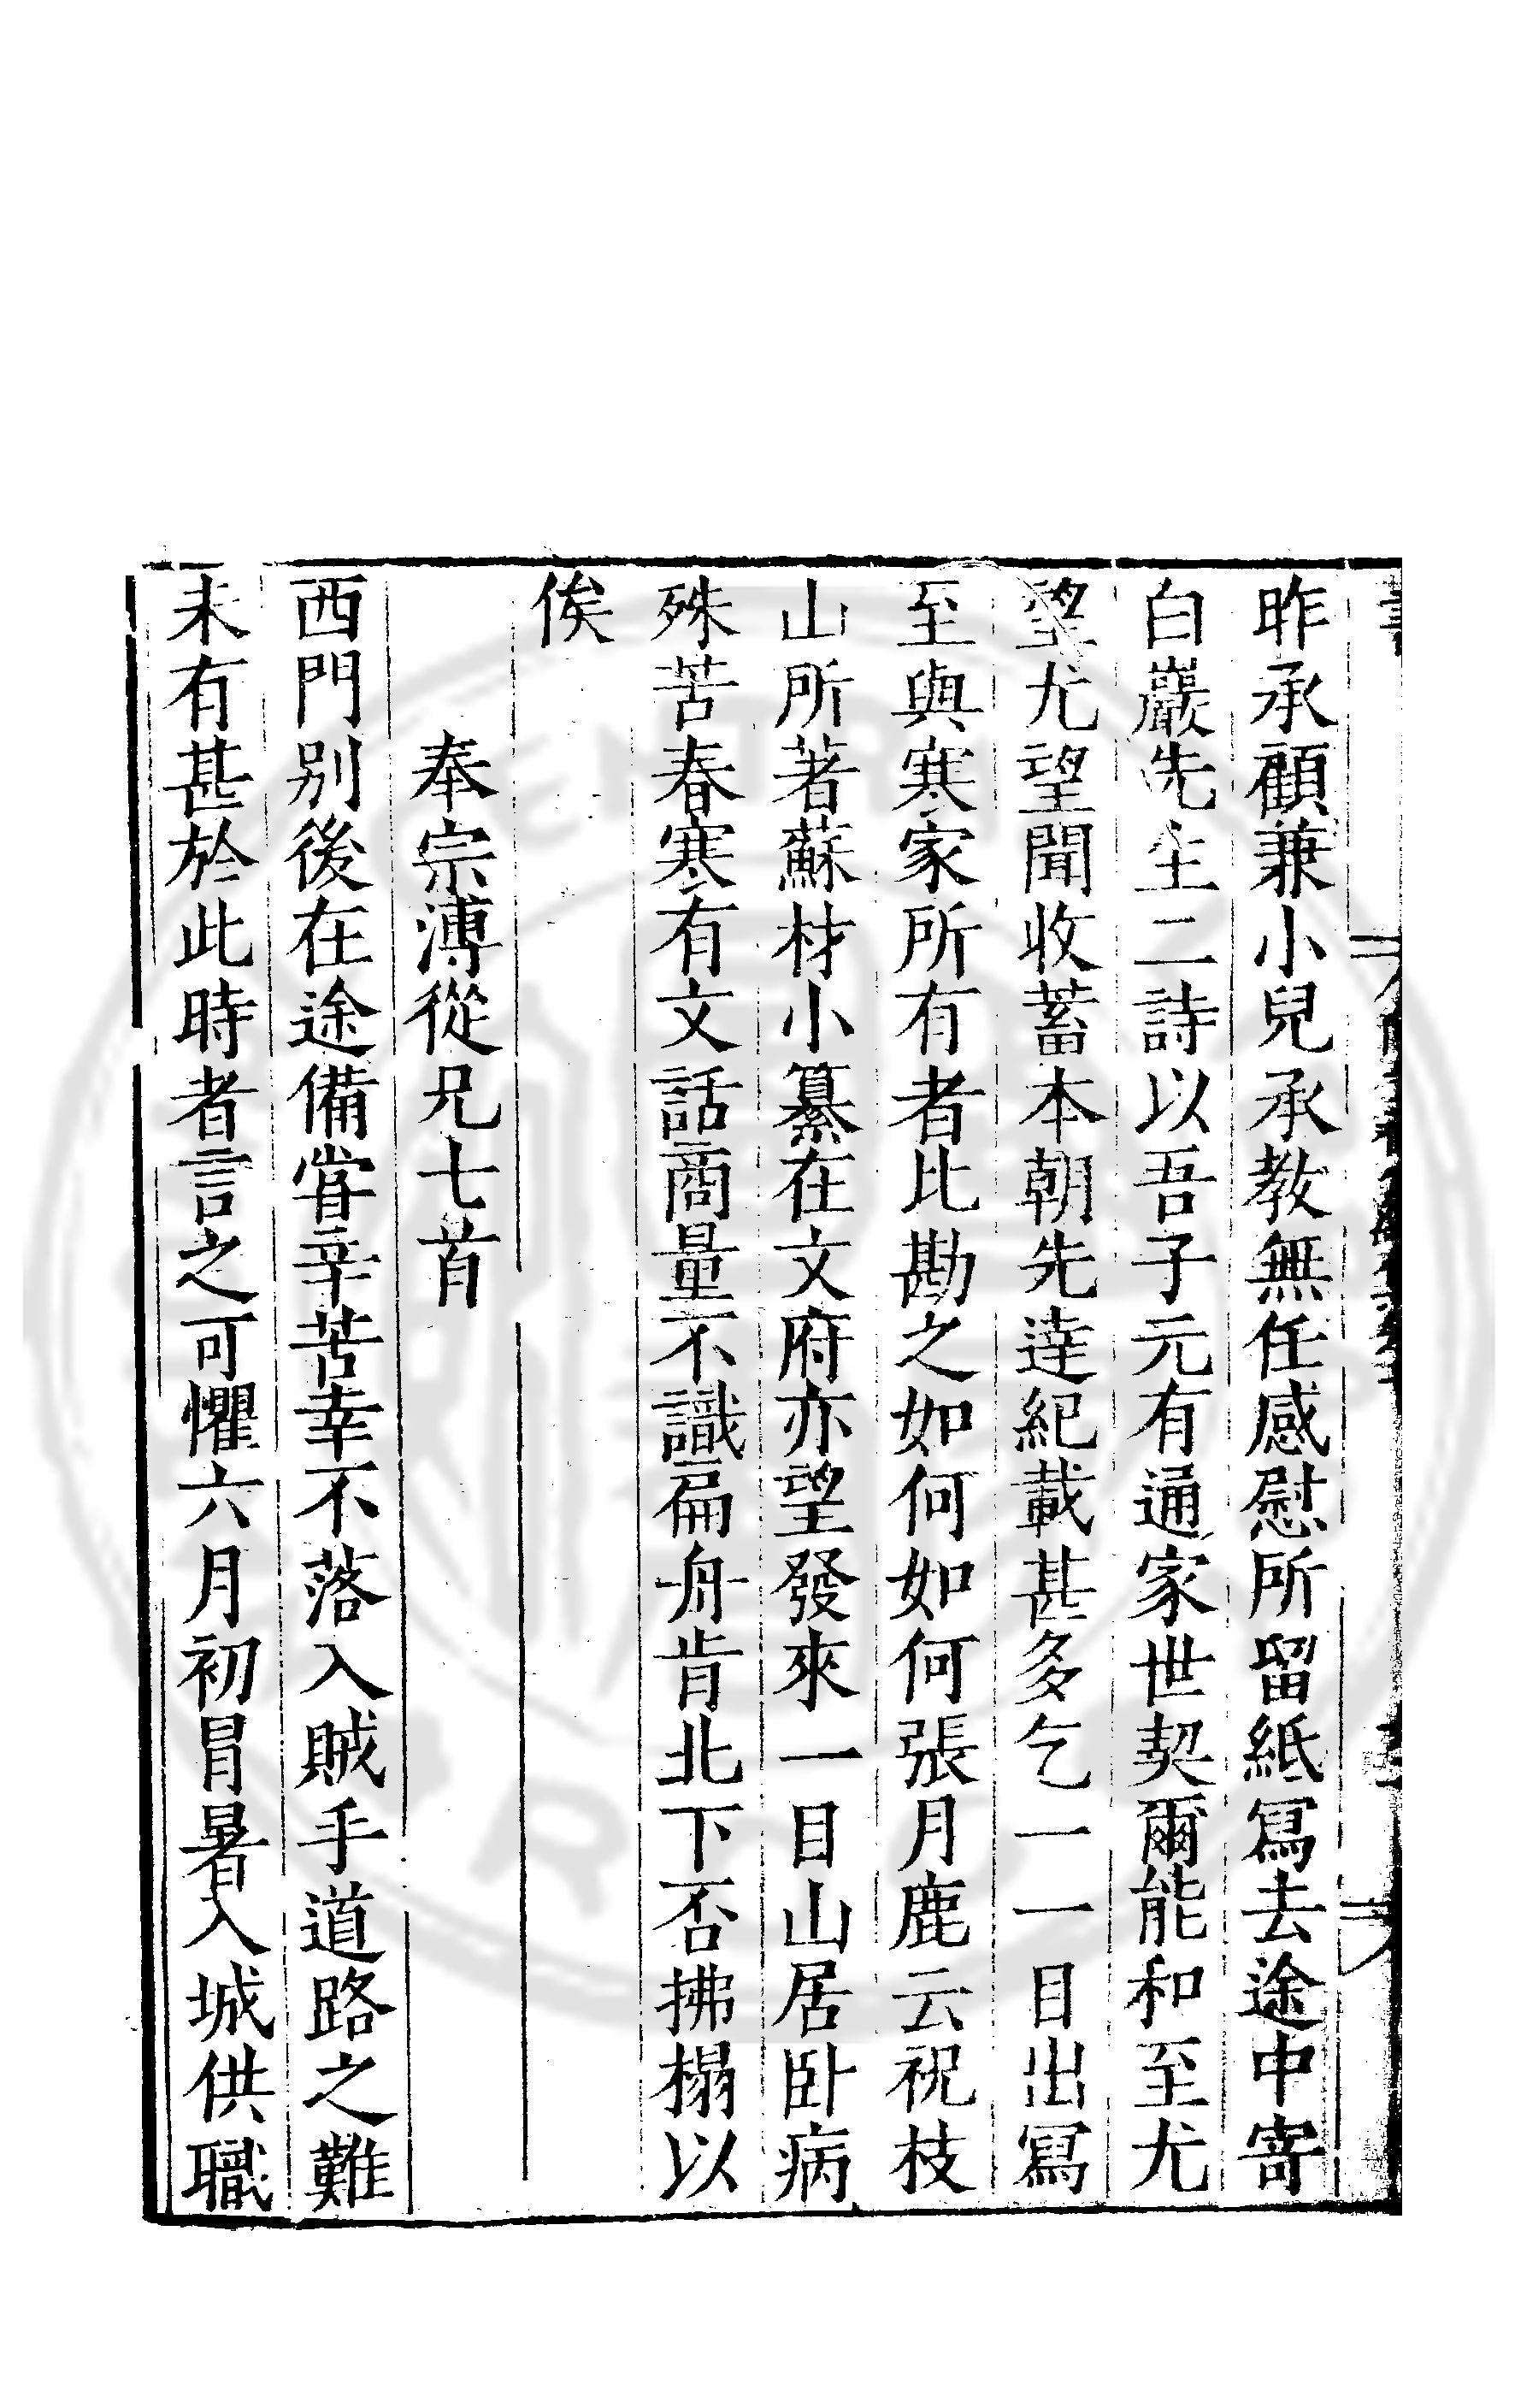 昨承顧兼小兒承教無任感慰所留紙寫去途中寄
白巖先生二詩以吾子元有通家世契爾能和至尤
望尤望聞收蓄本朝先達紀載甚多乞一一目出寫
至與寒家所有者比勘之如何如何張月鹿云祝枝
山所著蘇材小纂在文府亦望發來一目山居卧病
殊苦春寒有文話商量不識扁舟肯北下否拂榻以
俟
奉宗溥從兄七首
西門别後在途備嘗辛苦幸不落入賊手道路之難
未有甚於此時者言之可懼六月初冒暑入城供職